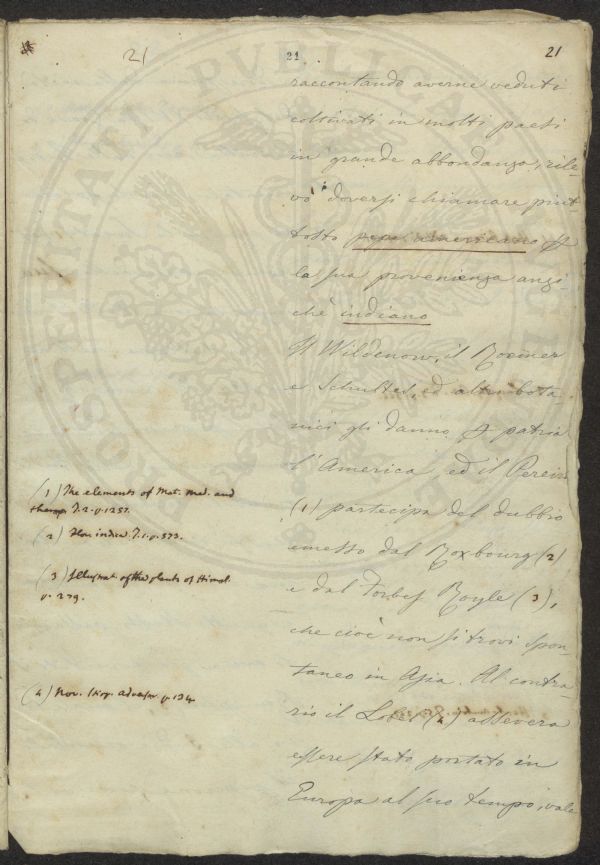 21 21 21
raccontando averne veduti
coltivati in molti paesi
in grande abbondanza, rile-
vò doversi chiamare piut-
tosto pepe americano p
la sua provenienza anzi
chè indiano
Il Wildenow, il Roemer
e Schultes, ed altri bota-
nici gli danno p patria
l'America, ed il Pereira
(1) partecipa del dubbio
emesso dal Roxbourg (2)
e dal Forbes Royle (3),
che cioè non si trovi spon-
taneo in Asia. Al contra-
rio il Lobel (4) assevera
essere stato portato in
Europa al suo tempo, vale
(1) The elements of Mat. Med. and
therap. T. 2. p. 1257.
(2) Flor. indica. T. 1. p. 573.
(3) Illustrat. of the plants of Himal.
p. 279.
(4) Nov. stirp. advers. p. 134
PROSPERITATI PVBLICAE